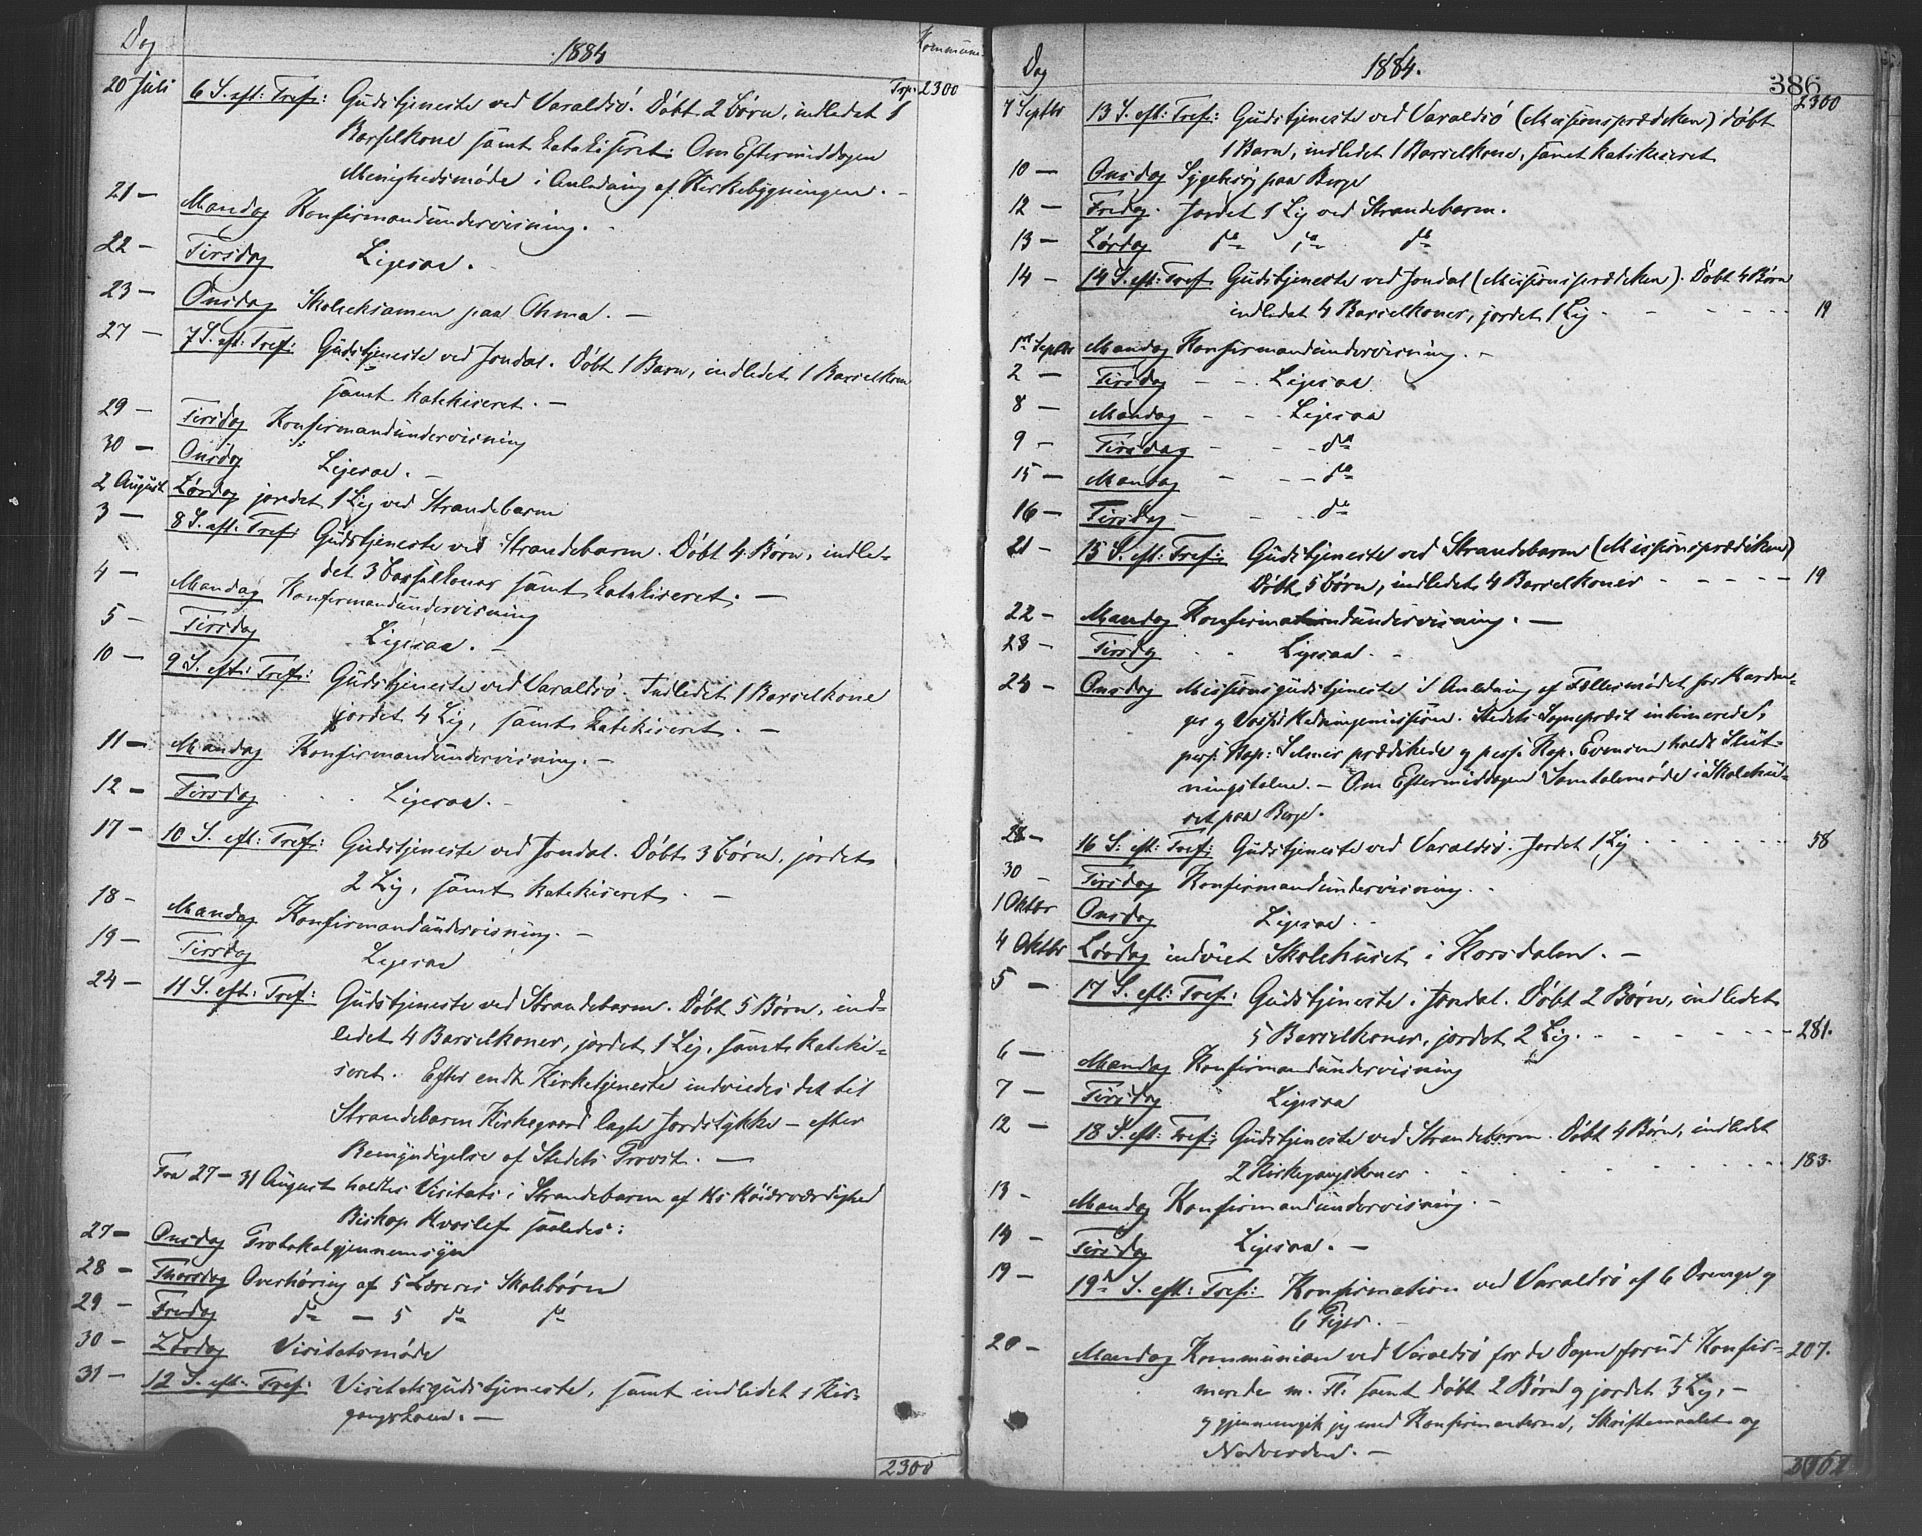 Dag
1884
Kommuni-
20 Juli 6 S. eft: Tref: Gudstjeneste ved Varaldsö. Döbt 2 Börn, indledet 1 Trp: 2300
Barselkone samt katekiseret. Om Eftermiddagen
Menighedsmöde i Anledning af Kirkebygningen. -
21 - Mandag Konfirmandundervisning. -
22 - Tirsdag Ligesaa. -
23 - Onsdag Skoleeksamen paa Ohma. -
27 - 7 S. eft: Tref: Gudstjeneste ved Jondal. Döbt 1 Barn, indledet 1 Barselkone
samt katekiseret. -
29 - Tirsdag Konfirmandundervisning
30 - Onsdag Ligesaa. -
2 August Lördag jordet 1 Lig ved Strandebarm
3 - 8 S. eft: Tref: Gudstjeneste ved Strandebarm. Döbt 4 Börn, indle-
det 3 Barselkoner samt katekiseret. -
4 - Mandag Konfirmandundervisning
5 - Tirsdag Ligesaa. -
10 - 9 S. eft: Tref: Gudstjeneste ved Varaldsö. Indledet 1 Barselkone
jordet 4 Lig, samt katekiseret. -
11 - Mandag Konfirmandundervisning. -
12 - Tirsdag Ligesaa. -
17 - 10 S. eft: Tref: Gudstjeneste ved Jondal. Döbt 3 Börn, jordet
2 Lig, samt katekiseret. -
18 - Mandag Konfirmandundervisning. -
19 - Tirsdag Ligesaa
24 - 11 S. eft: Tref: Gudstjeneste ved Strandebarm. Döbt 5 Börn, ind-
ledet 4 Barselkoner, jordet 1 Lig, samt kateki-
seret. Efter endt Kirketjeneste indviedes det til
Strandebarm Kirkegaard lagte Jordstykke - efter
Bemyndigelse af Stedets Provst. -
Fra 27 - 31 August holdtes Visitats i Strandebarm af Hs Höiærværdighed
Biskop Hvoslef saaledes:
27 - Onsdag Protokolgjennemsyn
28 - Thorsdag Overhöring af 5 Læreres Skolebörn
29 - Fredag do - 5 do do
30 - Lördag Visitatsmöde
31 - 12 S. eft: Tref: Visitatsgudstjeneste, samt indledet 1 Kir-
gangskone. -
2300
Dag
1884.
386
7 Septbr 13 S. eft: Tref: Gudstjeneste ved Varaldsö (Missionsprædiken) döbt 2300
1 Barn, indledet 1 Barselkone, samt katekiseret
10 - Onsdag Sygebesög paa Berge
12 - Fredag. Jordet 1 Lig ved Strandebarm.
13 - Lördag do do do
14 - 14 S. eft: Tref. Gudstjeneste ved Jondal (Missionsprædiken). Döbt 4 Börn
indledet 4 Barselkoner, jordet 1 Lig. - - - 19
1st Septbr Mandag Konfirmandundervisning. -
2 - Tirsdag - - Ligesaa
8 - Mandag - - Ligesaa
9 - Tirsdag - - do
15 - Mandag - - do
16 - Tirsdag - - do
21 - 15 S. eft: Tref: Gudstjeneste ved Strandebarm (Missionsprædiken)
Döbt 5 Börn, indledet 4 Barselkoner - - - - - 19
22 - Mandag Konfirmationdundervisning. -
23 - Tirsdag Ligesaa. -
24 - Onsdag Missionsgudstjeneste i Anledning af Fællesmödet for Hardan-
ger og Voss' Hedningemission. Stedets Sogneprest intimerede,
pers: Kap: Selmer prædikede og pers: Kap. Evensen holdt Slut-
ningstalen. - Om Eftermiddagen Samtalemöde i Skolehu-
set paa Berge.
28 - 16 S. eft: Tref: Gudstjeneste ved Varaldsö. Jordet 1 Lig - - - 58
30 - Tirsdag Konfirmandundervisning. -
1 Oktbr Onsdag Ligesaa. -
4 Oktbr Lördag indviet Skolehuset i Korsdalen. -
5 - 17 S. eft: Tref: Gudstjeneste i Jondal. Döbt 2 Börn, indledet
5 Barselkoner, jordet 2 Lig. - - - - 281.
6 - Mandag Konfirmandundervisning
7 - Tirsdag Ligesaa
12 - 18 S. eft: Tref: Gudstjeneste ved Strandebarm. Döbt 4 Börn, indledet
2 Kirkegangskoner - - - - 183.
13 - Mandag Konfirmandundervisning. -
14 - Tirsdag Ligesaa. -
19 - 19de S. eft: Tref: Konfirmation ved Varaldsö af 6 Drenge og
6 Piger. -
20 - Mandag Kommunion ved Varaldsö for de Dagen forud Konfir- 207.
merede m. Fl. samt döbt 2 Börn og jordet 3 Lig, -
og gjennemgik jeg med Konfirmanterne, Skriftemaalet og
Nadverden. -